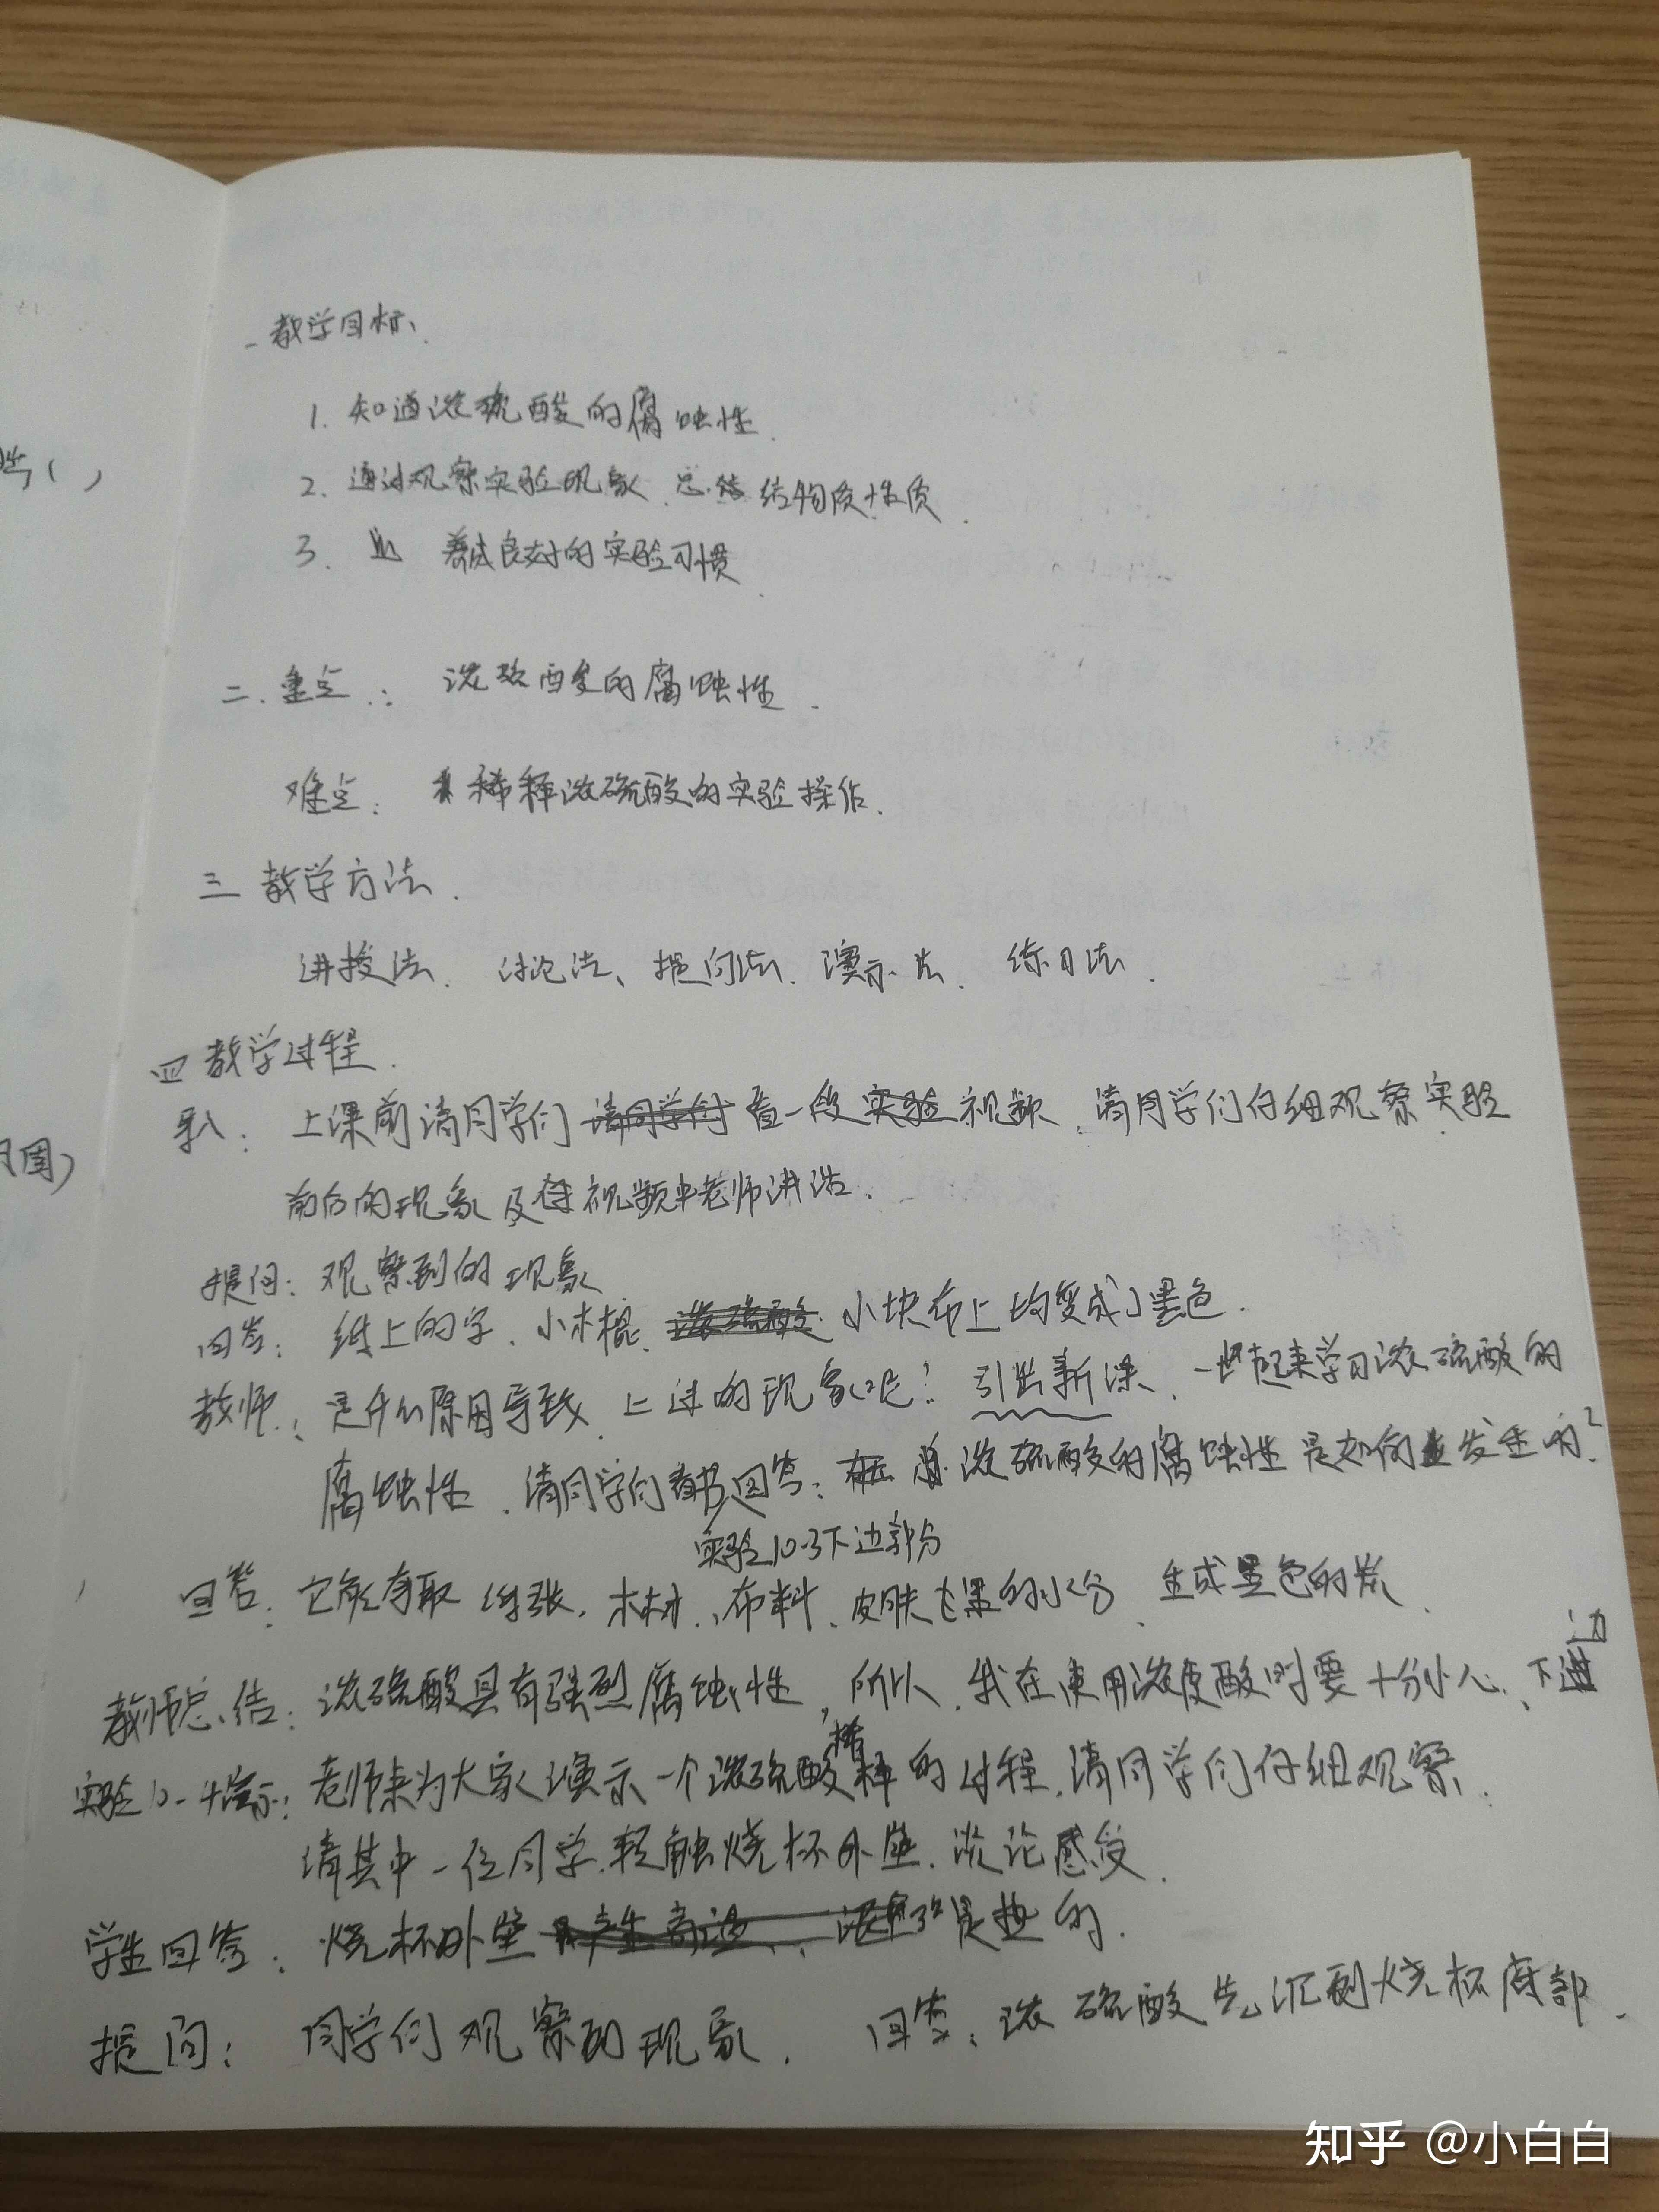 一教学目标、
1. 知道浓硫酸的腐蚀性.
2. 通过观察实验现象.总结物质性质.
3. 养成良好的实验习惯.
二.重点: 浓硫酸的腐蚀性.
难点: 稀释浓硫酸的实验操作.
三 教学方法.
讲授法、讨论法、提问法、演示法、练习法.
四 教学过程.
导入: 上课前请同学们看一段实验视频,请同学们仔细观察实验
前后的现象及在视频中老师讲话.
提问: 观察到的现象
回答: 纸上的字、小木棍、小块布上均变成了黑色.
教师: 是什么原因导致上述的现象呢?引出新课、一起来学习浓硫酸的
腐蚀性.请同学们看书回答:浓硫酸的腐蚀性是如何发生的?
实验10-3下边部分
回答: 它能夺取纸张、木材、布料、皮肤里的水分、生成黑色的炭.
教师总结: 浓硫酸具有强烈腐蚀性,所以,我在使用浓硫酸时要十分小心.下边
实验10-4演示: 老师来为大家演示一个浓硫酸稀释的过程,请同学们仔细观察.
请其中一位同学轻触烧杯外壁.谈论感受.
学生回答: 烧杯外壁是热的.
提问: 同学们观察到现象. 回答: 浓硫酸先沉到烧杯底部.
知乎 @小白白